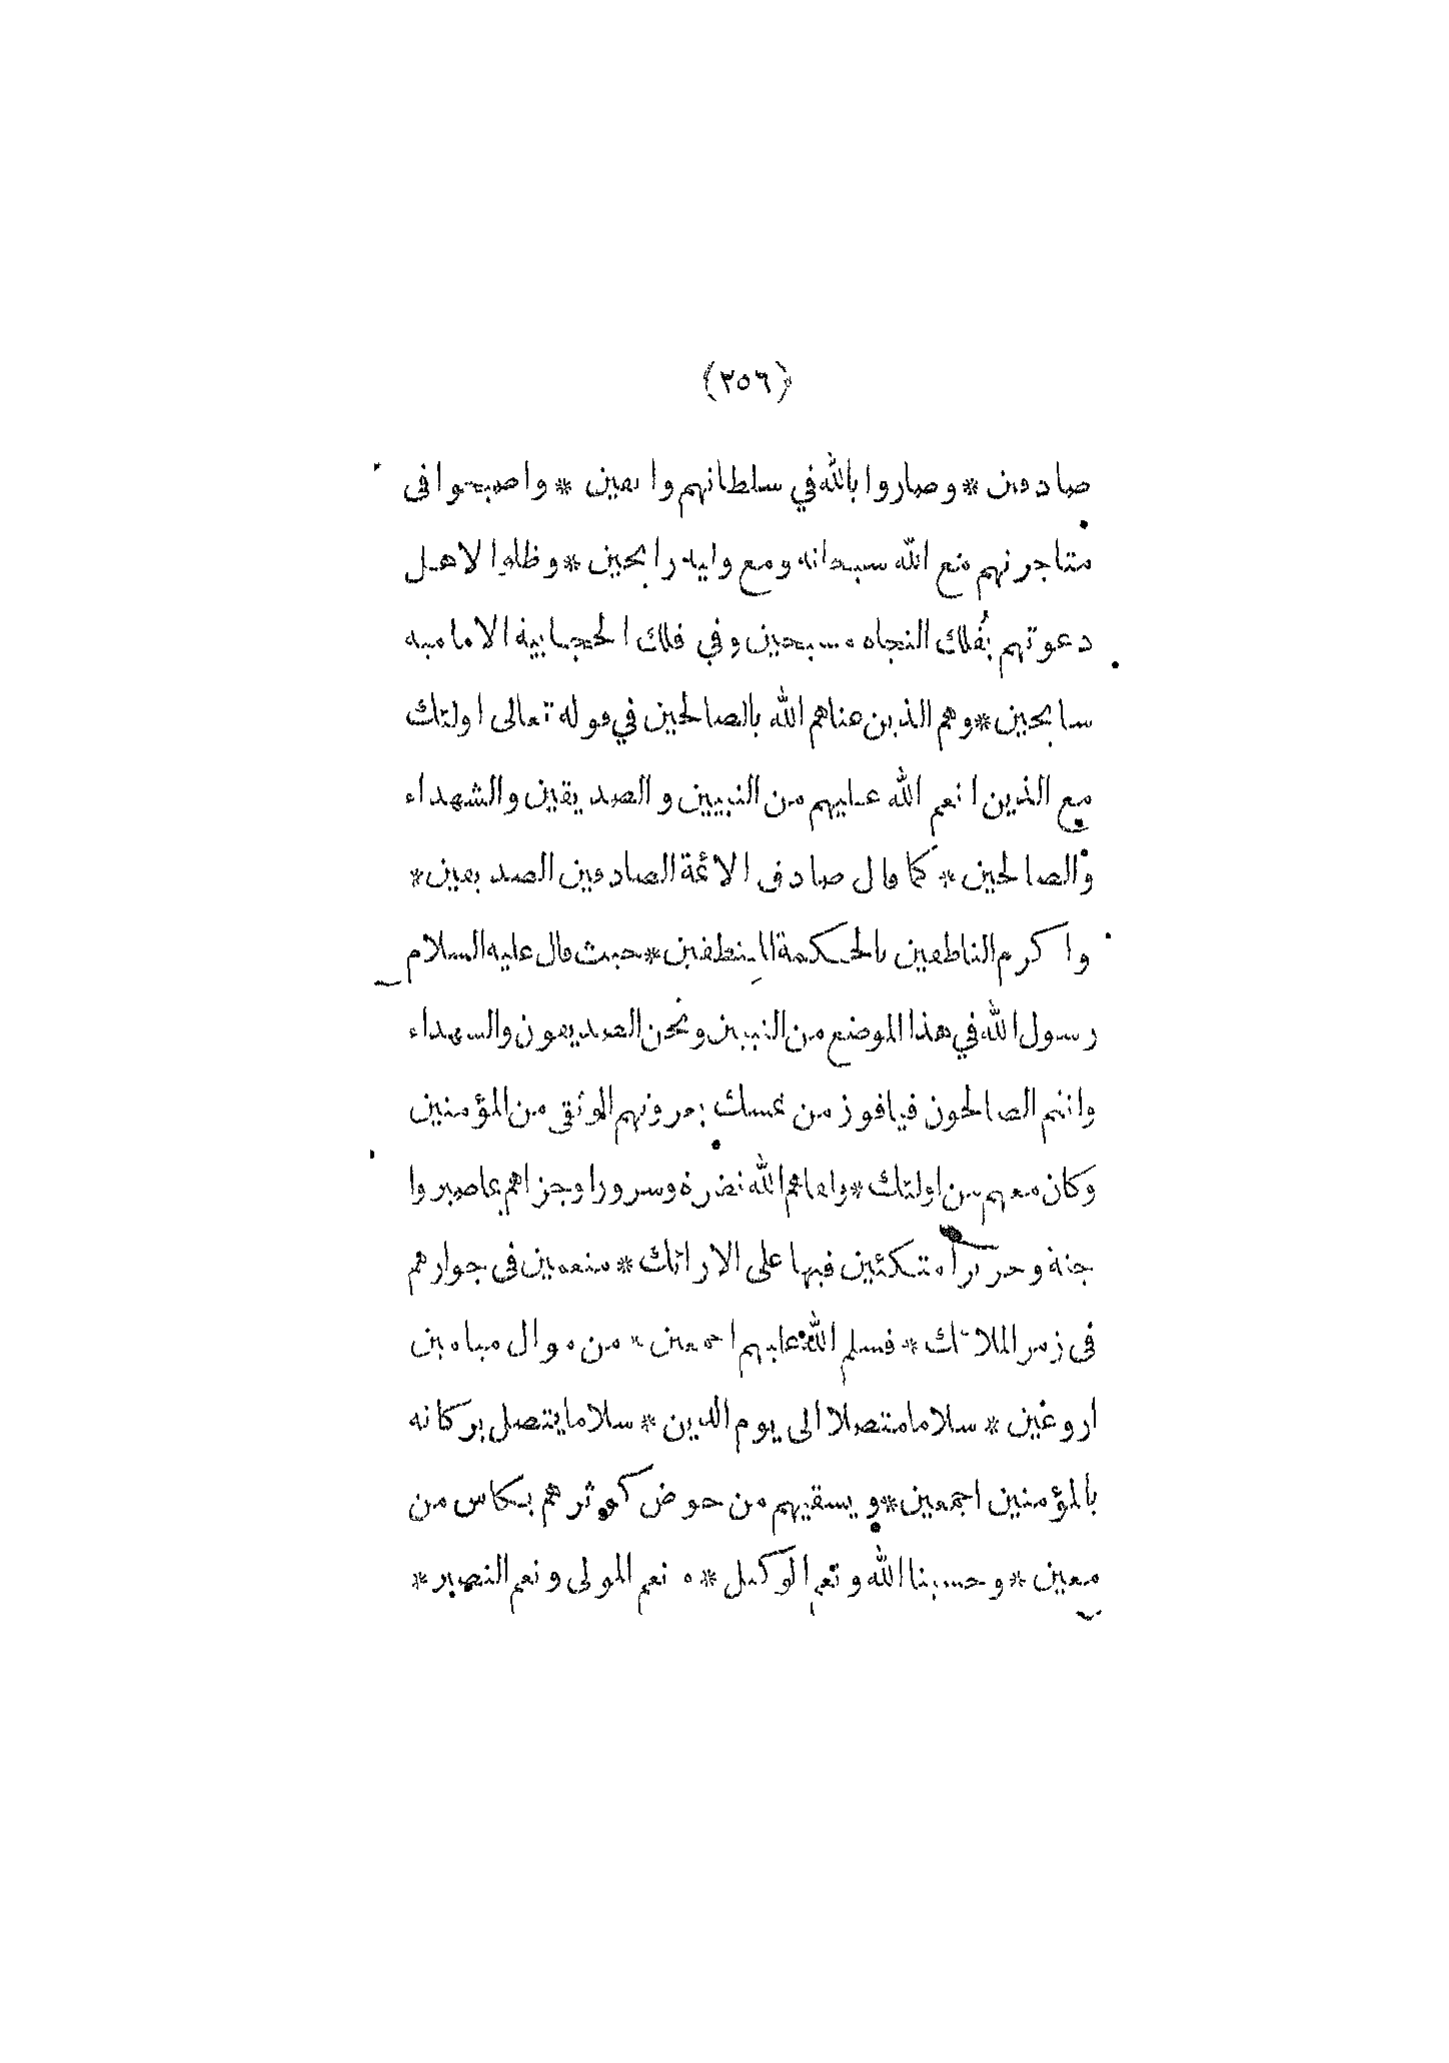 (٢٥٦)
صادقين * وصاروا بالله في سلطانهم واثقين * واصبحوا فى
متاجرتهم مع الله سبحانه ومع وليه رابحين * وظلوا لاهل
دعوتهم بفلك النجاه مسبحين وفي فلك الحجابية الامامية
سابحين * وهم الذين عناهم الله بالصالحين في قوله تعالى اولئك
مع الذين انعم الله عليهم من النبيين والصديقين والشهداء
والصالحين * كما قال صادق الائمة الصادقين الصديقين *
واكرم الناطقين بالحكمة المنطقين * حيث قال عليه السلام
رسول الله في هذا الموضع من النبيين ونحن الصديقون والشهداء
وانتم الصالحون فيافوز من تمسك بعروتهم الوثقى من المؤمنين
وكان معهم من اولئك * ولقاهم الله نضرة وسرورا وجزاهم بما صبروا
جنة وحريرا متكئين فيها على الارائك * منعمين فى جوارهم
فى زمر الملائك * فسلم الله عليهم اجمعين * من موال ميامين
اروغين * سلاما متصلا الى يوم الدين * سلاما يتصل بركاته
بالمؤمنين اجمعين * ويسقيهم من حوض كوثرهم بكاس من
معين * وحسبنا الله ونعم الوكيل * ونعم المولى ونعم النصير *